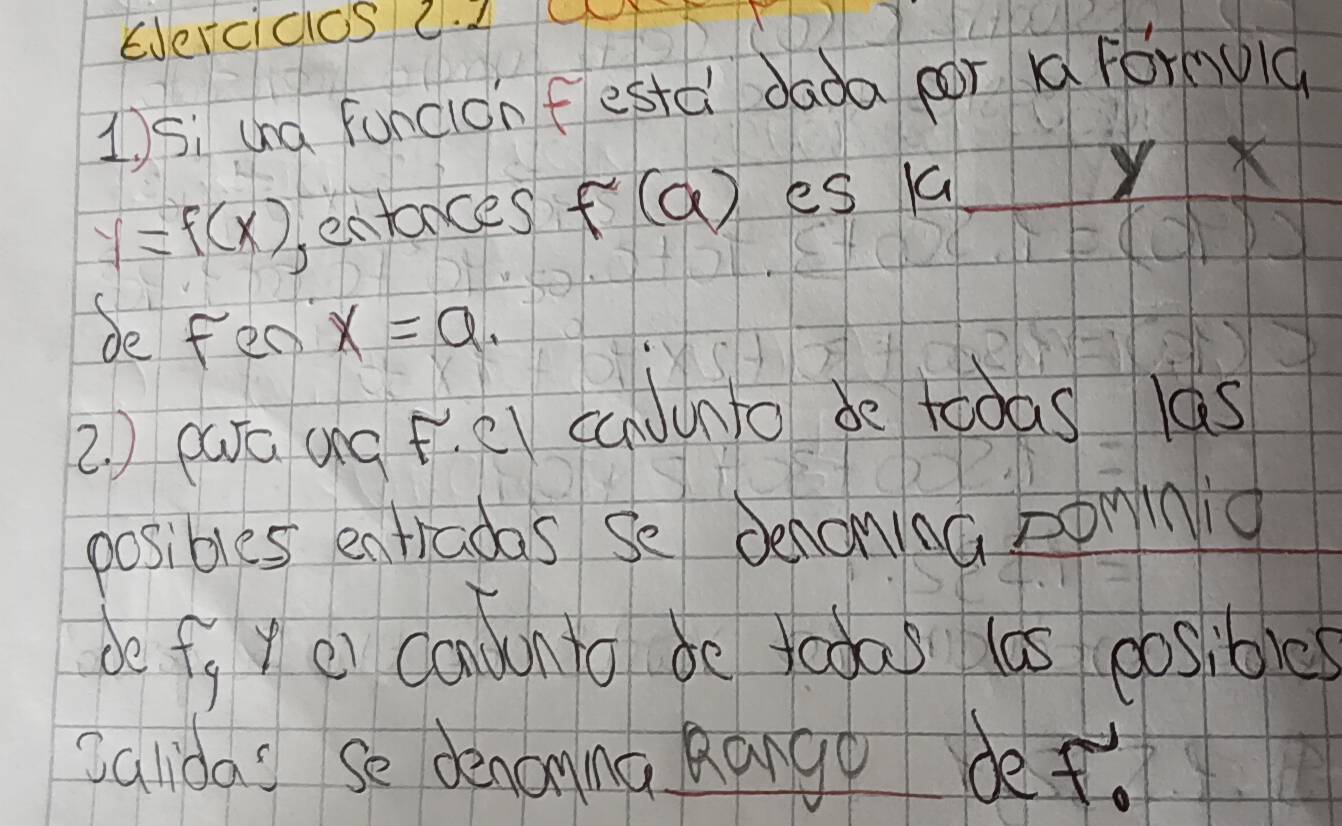 Ejercicios 2.1
1.) Si una función f está dada por la Fórmula
y = f(x), entonces f(a) es la y x
de f en x = a.
2.) para una f. el conjunto de todas las
posibles entradas se denomina Dominio
de f, y el conjunto de todas las posibles
salidas se denomina Rango de f.